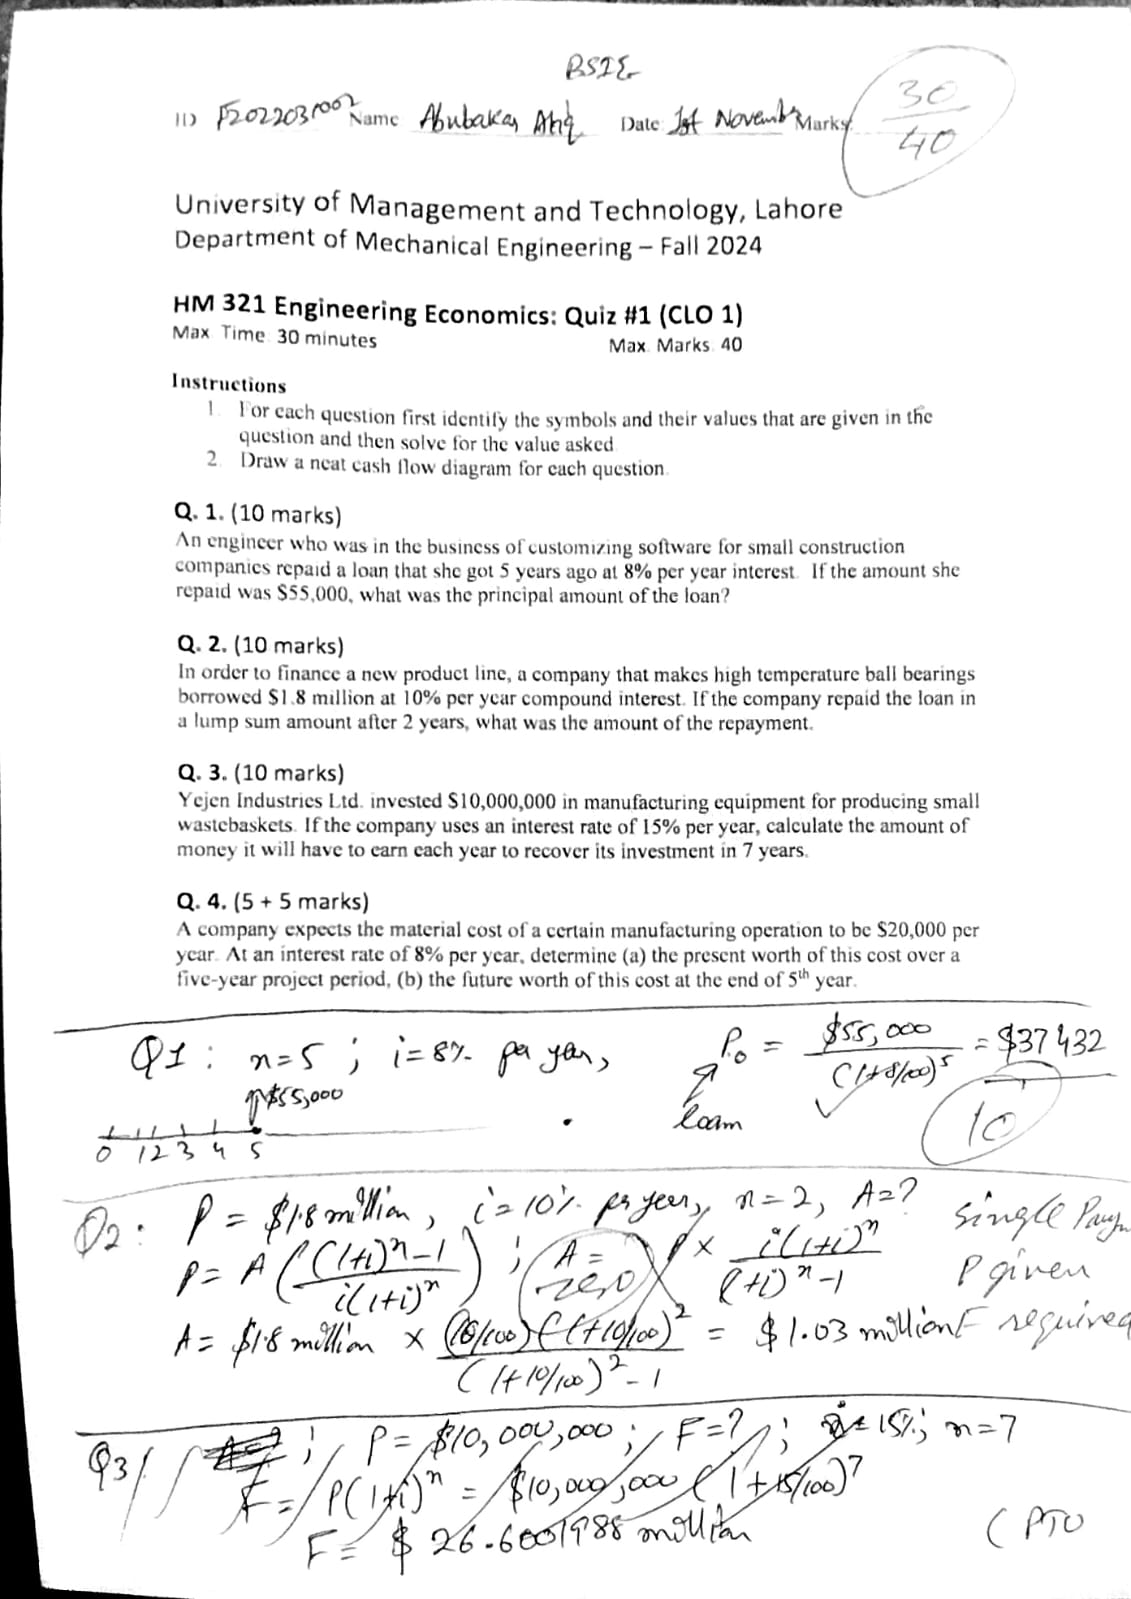 BSIE
ID F2022031002 Name Abubakar Atiq Date 1st November Marks 30/40
University of Management and Technology, Lahore
Department of Mechanical Engineering – Fall 2024
HM 321 Engineering Economics: Quiz #1 (CLO 1)
Max Time 30 minutes Max. Marks. 40
Instructions
1. For each question first identify the symbols and their values that are given in the
question and then solve for the value asked.
2. Draw a neat cash flow diagram for each question.
Q. 1. (10 marks)
An engineer who was in the business of customizing software for small construction
companies repaid a loan that she got 5 years ago at 8% per year interest. If the amount she
repaid was $55,000, what was the principal amount of the loan?
Q. 2. (10 marks)
In order to finance a new product line, a company that makes high temperature ball bearings
borrowed $1.8 million at 10% per year compound interest. If the company repaid the loan in
a lump sum amount after 2 years, what was the amount of the repayment.
Q. 3. (10 marks)
Yejen Industries Ltd. invested $10,000,000 in manufacturing equipment for producing small
wastebaskets. If the company uses an interest rate of 15% per year, calculate the amount of
money it will have to earn each year to recover its investment in 7 years.
Q. 4. (5 + 5 marks)
A company expects the material cost of a certain manufacturing operation to be $20,000 per
year. At an interest rate of 8% per year, determine (a) the present worth of this cost over a
five-year project period, (b) the future worth of this cost at the end of 5th year.
Q1 : n=5 ; i=8% per year, P₀ = $55,000 / (1+8/100)^5 = $37432
$55,000
loan
10
0 1 2 3 4 5
Q2 : P = $1.8 million, i=10% per year, n=2, A=? Single Paym
P = A ( ((1+i)^n - 1) / (i(1+i)^n) ) ; A = P × i(1+i)^n / ((1+i)^n - 1) P given
zero
A = $1.8 million × (10/100)(1+10/100)^2 / ((1+10/100)^2 - 1) = $1.03 million F required
Q3/ A=? ; P= $10,000,000 ; F=? ; i= 15% ; n=7
F = P(1+i)^n = $10,000,000 (1+15/100)^7
F = $ 26.6001988 million
(PTO